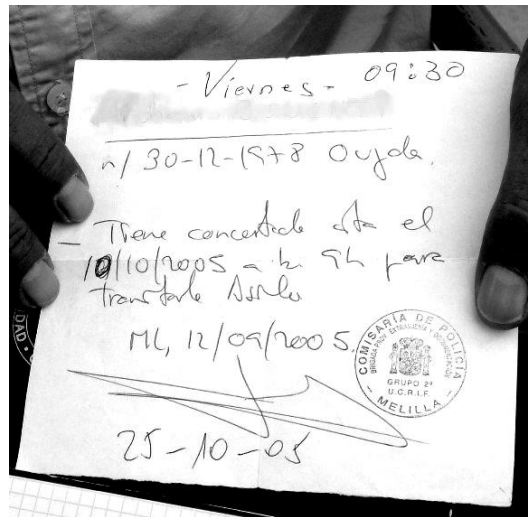 - Viernes - 09:30
n/ 30-12-1978 Oujda.
- Tiene concertada cita el
10/10/2005 a la 9h para
tramitarle Asilo
ML, 12/09/2005.
COMISARÍA DE POLICÍA
BRIGADA PROV. EXTRANJERÍA Y DOCUMENTACIÓN
GRUPO 2º
U.C.R.I.F.
- MELILLA -
25-10-05
DAD